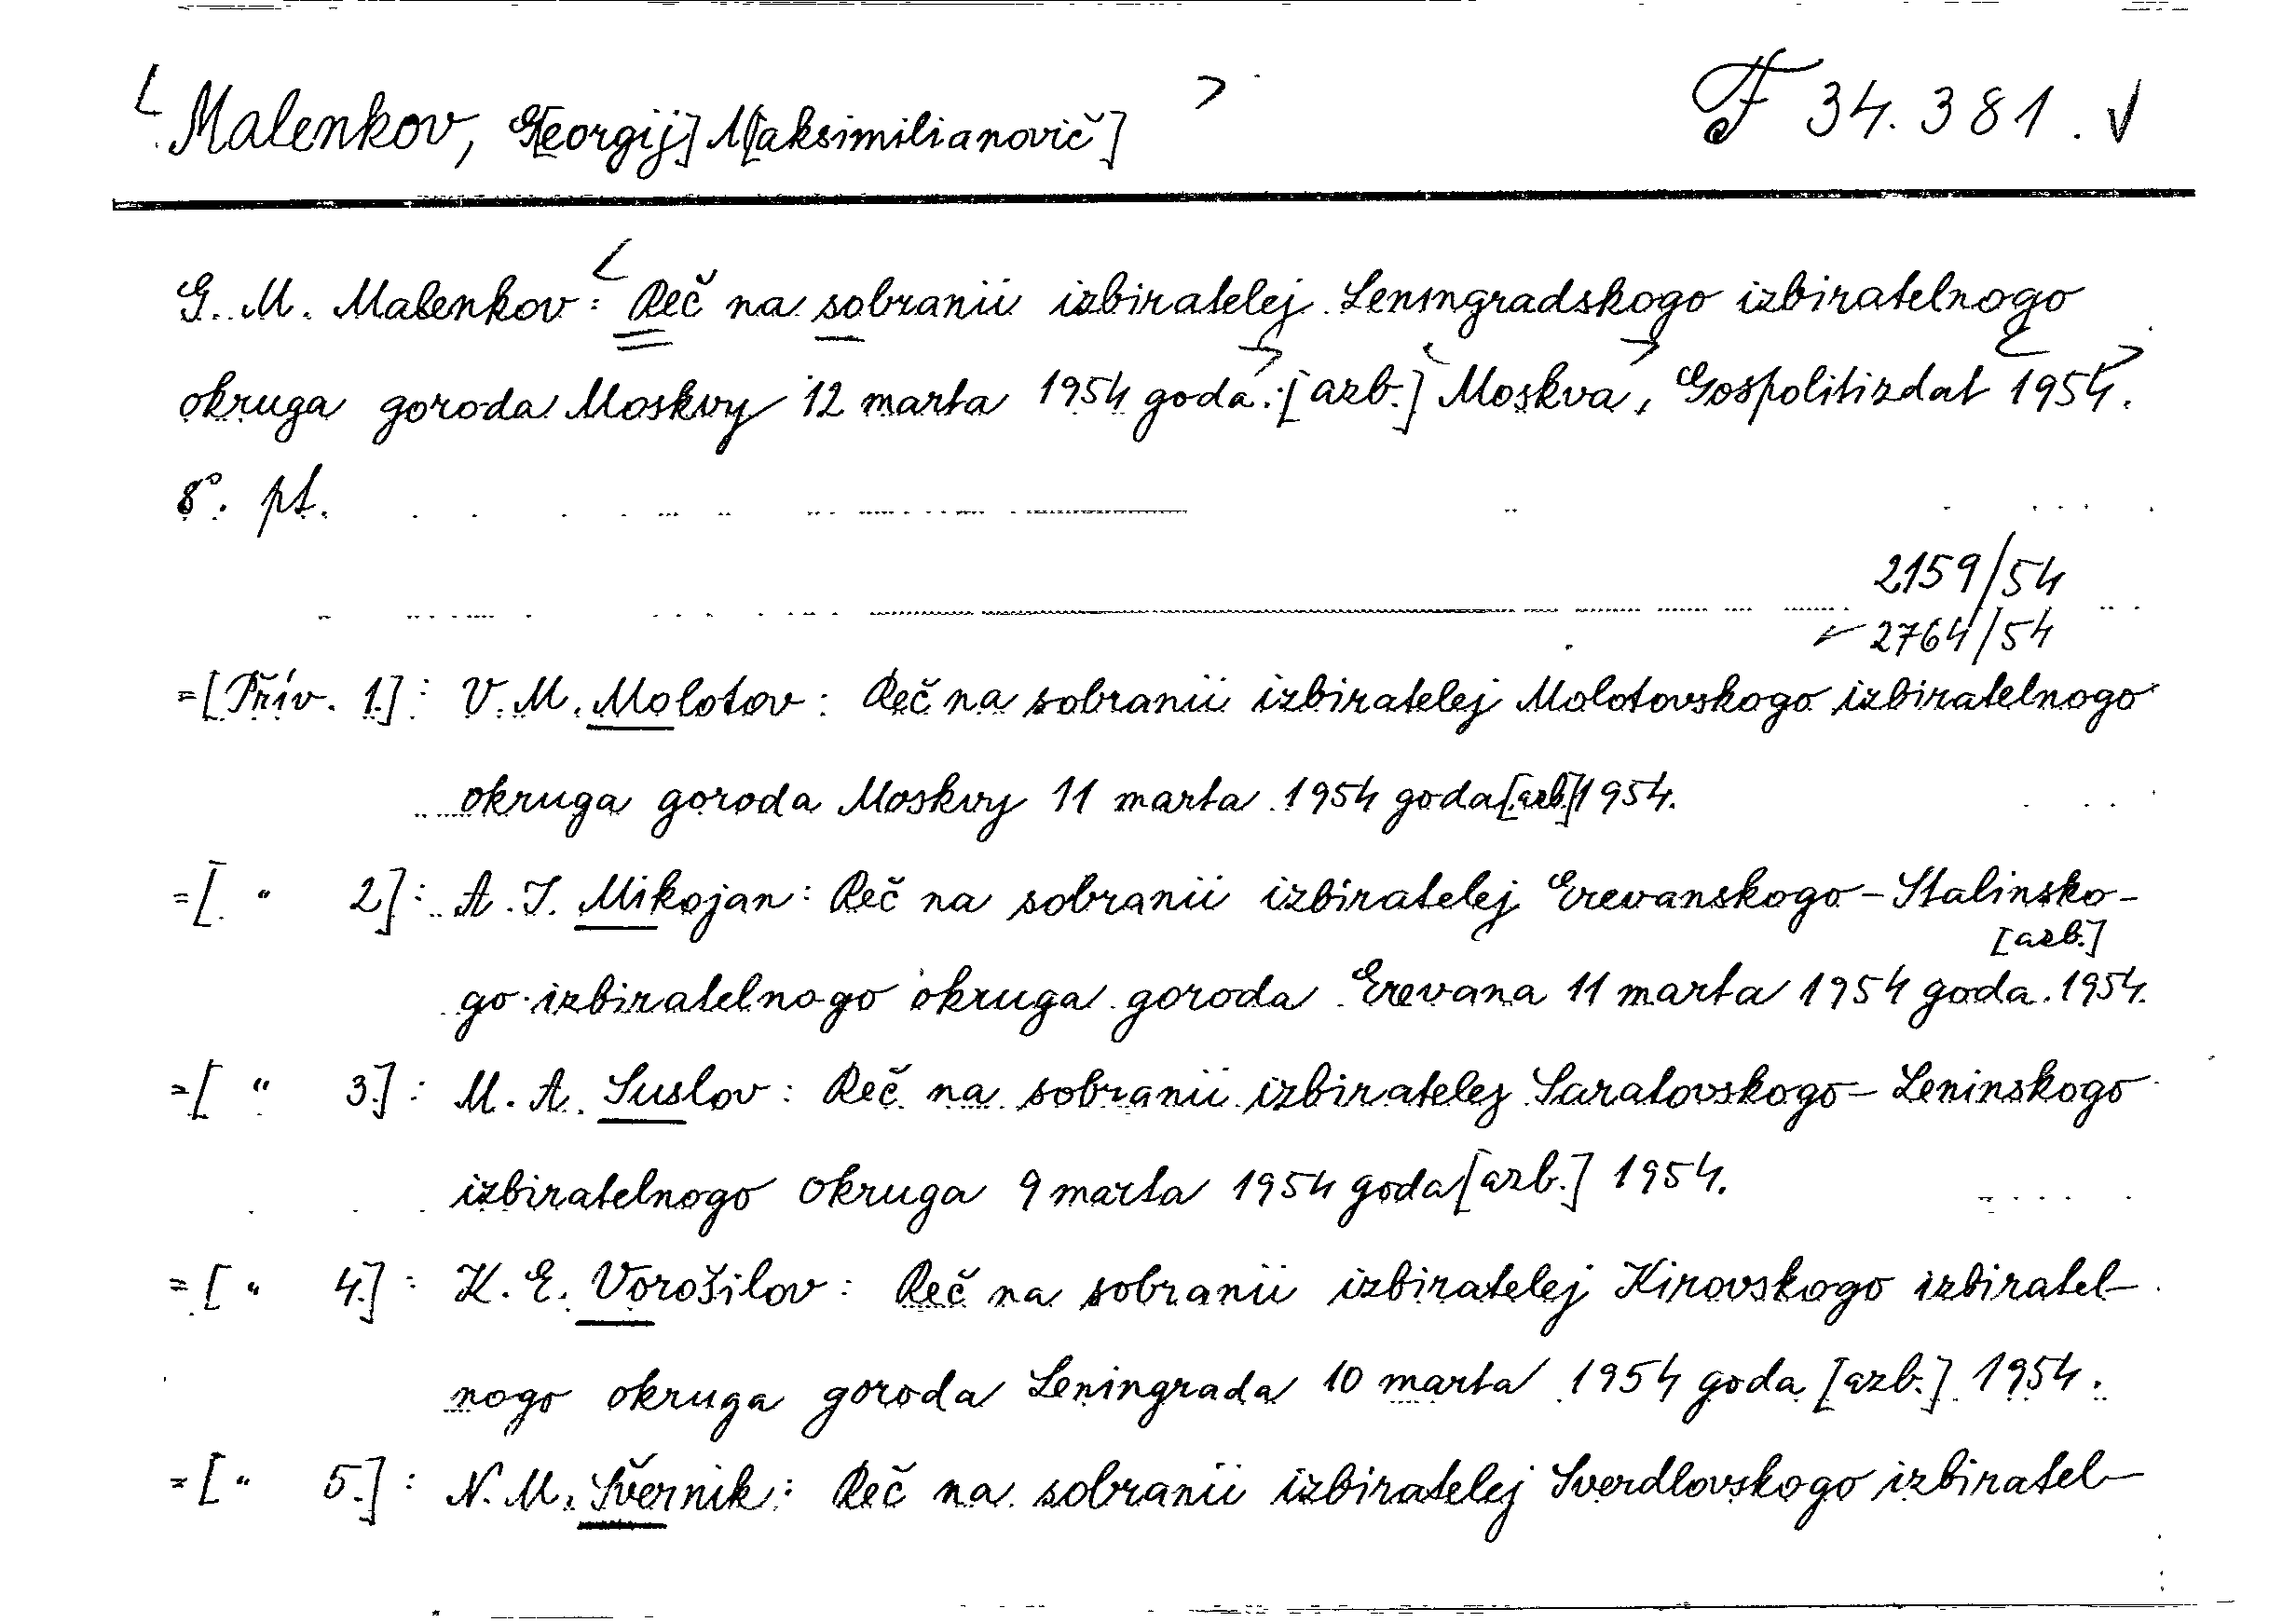 < Malenkov, G[eorgij] M[aksimilianovič] > F 34.381. √
G. M. Malenkov: < Reč na sobranii izbiratelej Leningradskogo izbiratelnogo
okruga goroda Moskvy 12 marta 1954 goda >. [azb.] < Moskva >, Gospolitizdat < 1954 >.
8°. pt.
2159/54
✓ 2764/54
=[Přív. 1.]: V. M. Molotov: Reč na sobranii izbiratelej Molotovskogo izbiratelnogo
okruga goroda Moskvy 11 marta 1954 goda [azb.] 1954.
=[ " 2]: A. I. Mikojan: Reč na sobranii izbiratelej Erevanskogo-Stalinsko-
go izbiratelnogo okruga goroda Erevana 11 marta 1954 goda [azb.]. 1954.
=[ " 3.]: M. A. Suslov: Reč na sobranii izbiratelej Saratovskogo-Leninskogo
izbiratelnogo okruga 9 marta 1954 goda [azb.] 1954.
=[ " 4.]: K. E. Vorošilov: Reč na sobranii izbiratelej Kirovskogo izbiratel-
nogo okruga goroda Leningrada 10 marta 1954 goda [azb.] 1954.
=[ " 5.]: N. M. Švernik: Reč na sobranii izbiratelej Sverdlovskogo izbiratel-